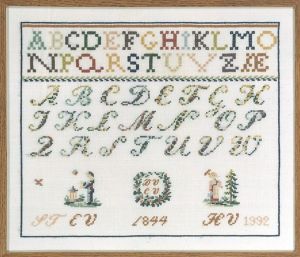 ABCDEFGHIKLMO
NPQRSTUVZÆ
ABCDEFGH
IKLMNOP
QRSTUVW
DV
EV
ST EV 1844 HV 1992